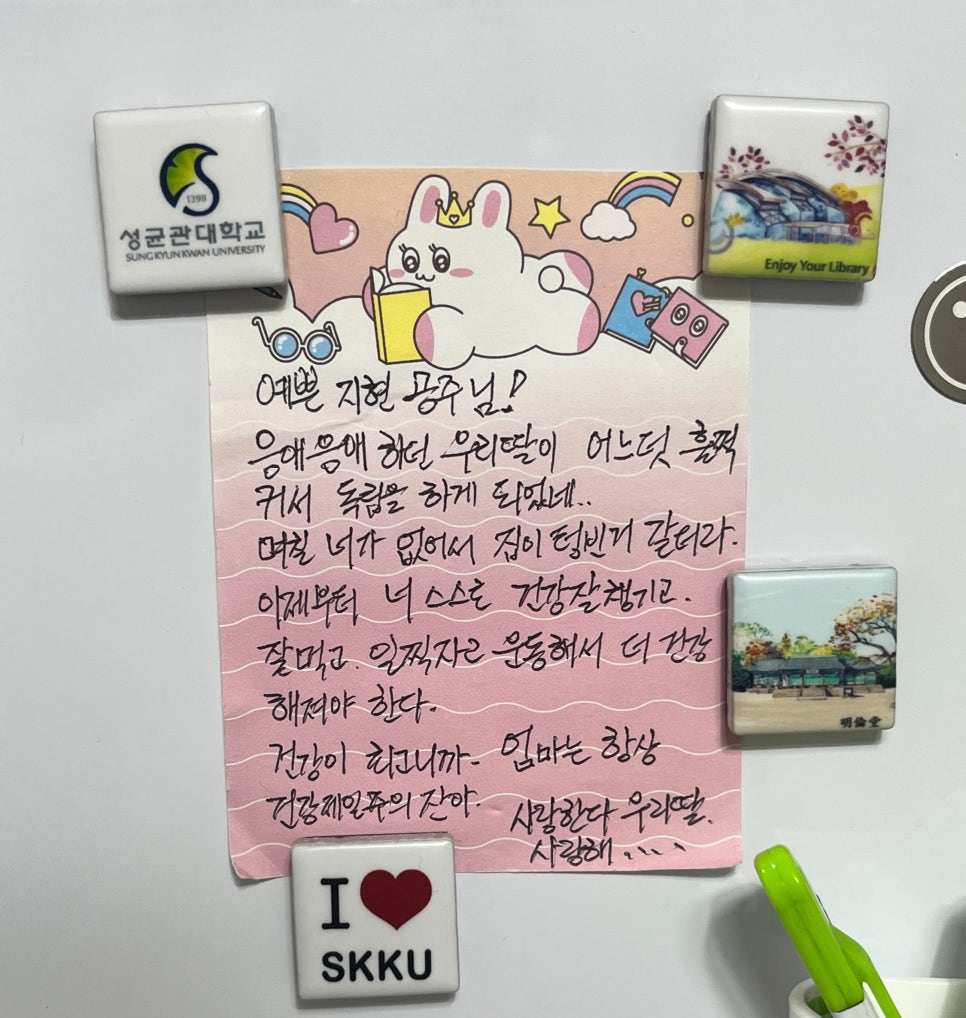 1398
성균관대학교
SUNGKYUNKWAN UNIVERSITY
Enjoy Your Library
예쁜 지현 공주님!
응애응애 하던 우리딸이 어느덧 훌쩍
커서 독립을 하게 되었네..
며칠 너가 없어서 집이 텅빈거 같더라.
이제부터 너 스스로 건강잘챙기고.
잘먹고. 일찍자고 운동해서 더 건강
해져야 한다.
건강이 최고니까. 엄마는 항상
건강제일주의 잔아.
사랑한다 우리딸.
사랑해 ....
明倫堂
I ♥
SKKU